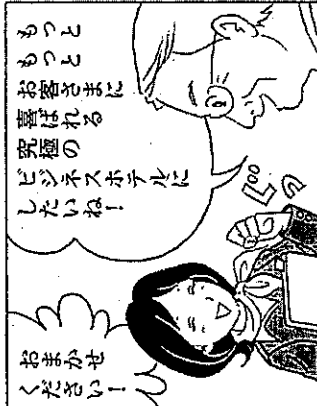 もっと
もっと
お客さまに
喜ばれる
究極の
ビジネスホテルに
したいね!
ぐっ
おまかせ
ください!